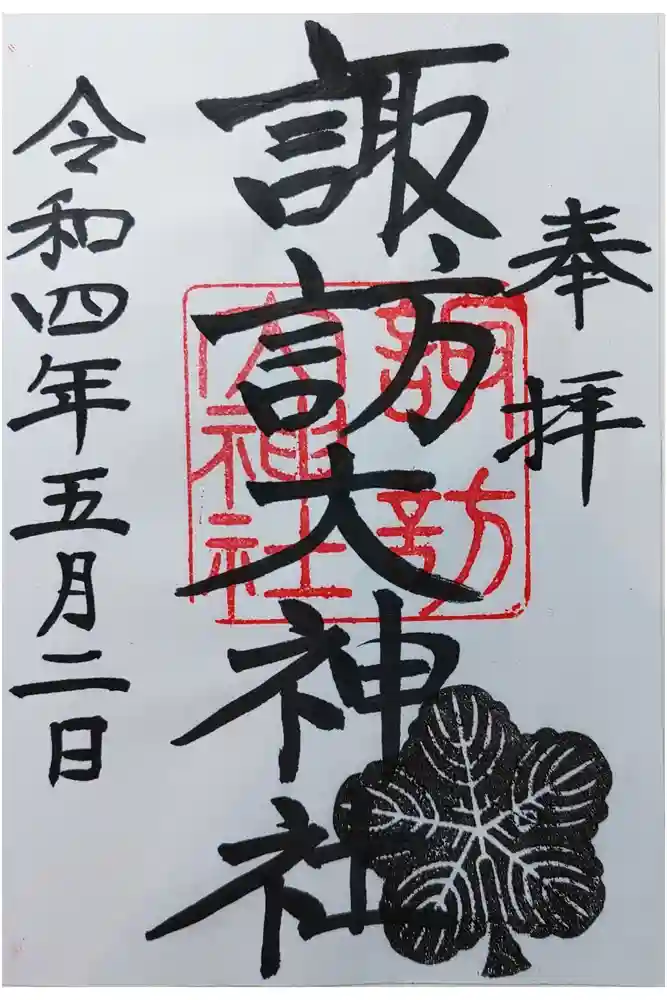 奉拝
諏訪大神社
諏訪
大神社
令和四年五月二日